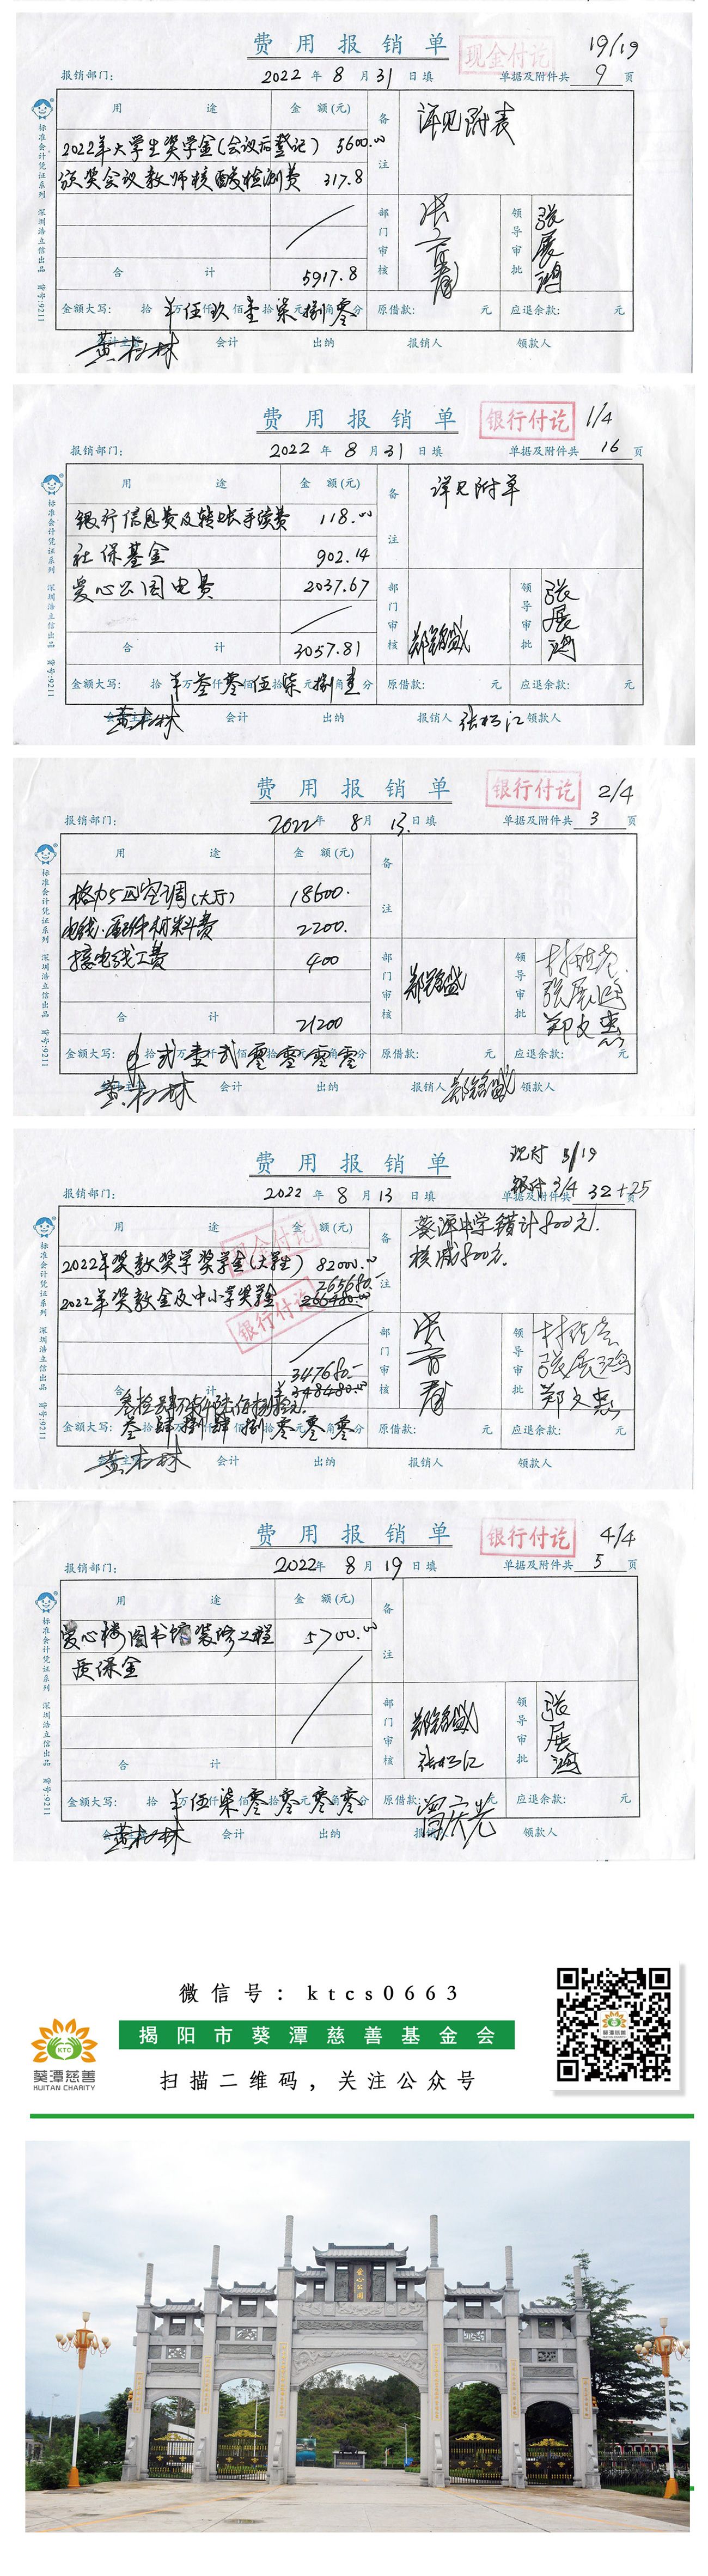 费用报销单
现金付讫
19/19
报销部门：
2022年8月31日填
单据及附件共9页
用途
金额(元)
备注
详见附表
2022年大学生奖学金(会议后登记) 5600.00
颁奖会议教师核酸检测费 317.8
部门审核
领导审批
张展鸿
合计
5917.8
金额大写： 拾 万伍仟玖佰壹拾柒元捌角零分
原借款： 元
应退余款： 元
黄松林
会计
出纳
报销人
领款人
标准会计凭证系列 深圳浩立信出品 货号:9211
费用报销单
银行付讫
1/4
报销部门：
2022年8月31日填
单据及附件共16页
用途
金额(元)
备注
详见附单
银行信息费及转账手续费 118.00
社保基金 902.14
爱心公园电费 2037.67
部门审核
郑铭盛
领导审批
张展鸿
合计
3057.81
金额大写： 拾 万叁仟零佰伍拾柒元捌角壹分
原借款： 元
应退余款： 元
黄松林
会计
出纳
报销人
张松江
领款人
标准会计凭证系列 深圳浩立信出品 货号:9211
费用报销单
银行付讫
2/4
报销部门：
2022年8月13日填
单据及附件共3页
用途
金额(元)
备注
格力5匹空调(大厅) 18600.
电线.配件材料费 2200.
接电线工费 400
部门审核
郑铭盛
领导审批
张展鸿
郑文忠
合计
21200
金额大写： 拾贰万壹仟贰佰零拾零元零角零分
原借款： 元
应退余款： 元
黄松林
会计
出纳
报销人
郑铭盛
领款人
标准会计凭证系列 深圳浩立信出品 货号:9211
费用报销单
现付 5/19
银付 3/4
报销部门：
2022年8月13日填
单据及附件共32+25
用途
金额(元)
备注
葵源中学错计800元.
核减800元.
现金付讫
2022年奖教奖学奖学金(大学生) 82000.00
265680.-
2022年奖教金及中小学奖学金 266480.00
银行付讫
部门审核
领导审批
张展鸿
郑文忠
347680.-
合计
348480.00
叁拾肆万柒仟陆佰捌拾元.
金额大写： 叁拾肆万捌仟肆佰捌拾零元零角零分
原借款： 元
应退余款： 元
黄松林
会计
出纳
报销人
领款人
标准会计凭证系列 深圳浩立信出品 货号:9211
费用报销单
银行付讫
4/4
报销部门：
2022年8月19日填
单据及附件共5页
用途
金额(元)
备注
爱心楼图书馆装修工程 5700.00
质保金
部门审核
郑铭盛
张松江
领导审批
张展鸿
合计
金额大写： 拾 万伍仟柒佰零拾零元零角零分
原借款： 元
应退余款： 元
黄松林
会计
出纳
报销人
领款人
标准会计凭证系列 深圳浩立信出品 货号:9211
微信号：ktcs0663
揭阳市葵潭慈善基金会
扫描二维码，关注公众号
KTC
葵潭慈善
KUITAN CHARITY
葵潭慈善
爱心公园